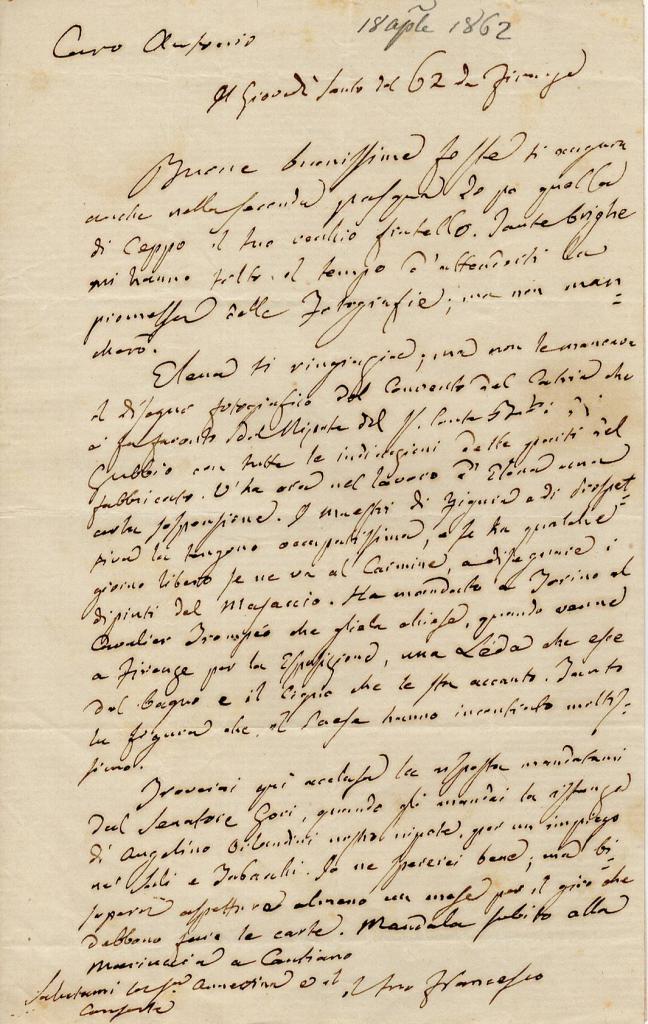 18 aple 1862
Caro Antonio
Il Giovedì Santo del 62 da Firenze
Buone buonissime feste ti auguro
anche nella seconda pasqua dopo quella
di Ceppo il tuo vecchio fratello. Tante brighe
mi hanno tolto il tempo d'attenderti la
promessa delle Fotografie; ma non man=
cherò.
Elena ti ringrazia; ma non le mancava
il disegno fotografico del Convento del
Gubbio con tutte le indicazioni delle del
fabbricato. V'ha ora nel lavoro d'Elena una
certa sospensione. I maestri di figura e di prospet=
tiva la tengono occupatissima, e se ha qualche
giorno libero se ne va al Carmine, a disegnare i
dipinti del Masaccio. Ha mandato a Torino al
Cavalier Trompeo che gliela chiese, quando venne
a Firenze per la Esposizione, una Leda che esce
dal bagno e il Cigno che le sta accanto. Tanto
la figura che il Paese hanno incontrato moltis=
simo.
Troverai qui acclusa la risposta mandatami
dal Senatore Gori, quando gli mandai la istanza
di Angelino Orlandini nostro nipote, per un impiego
ne' Sali e Tabacchi. Io ne spererei bene; ma bi=
sognerà aspettare almeno un mese per il giro che
debbono fare le carte. Mandala subito alla
Mariuccia a Cantiano
Salutami la Annettina e il
Consorte
il tuo Francesco